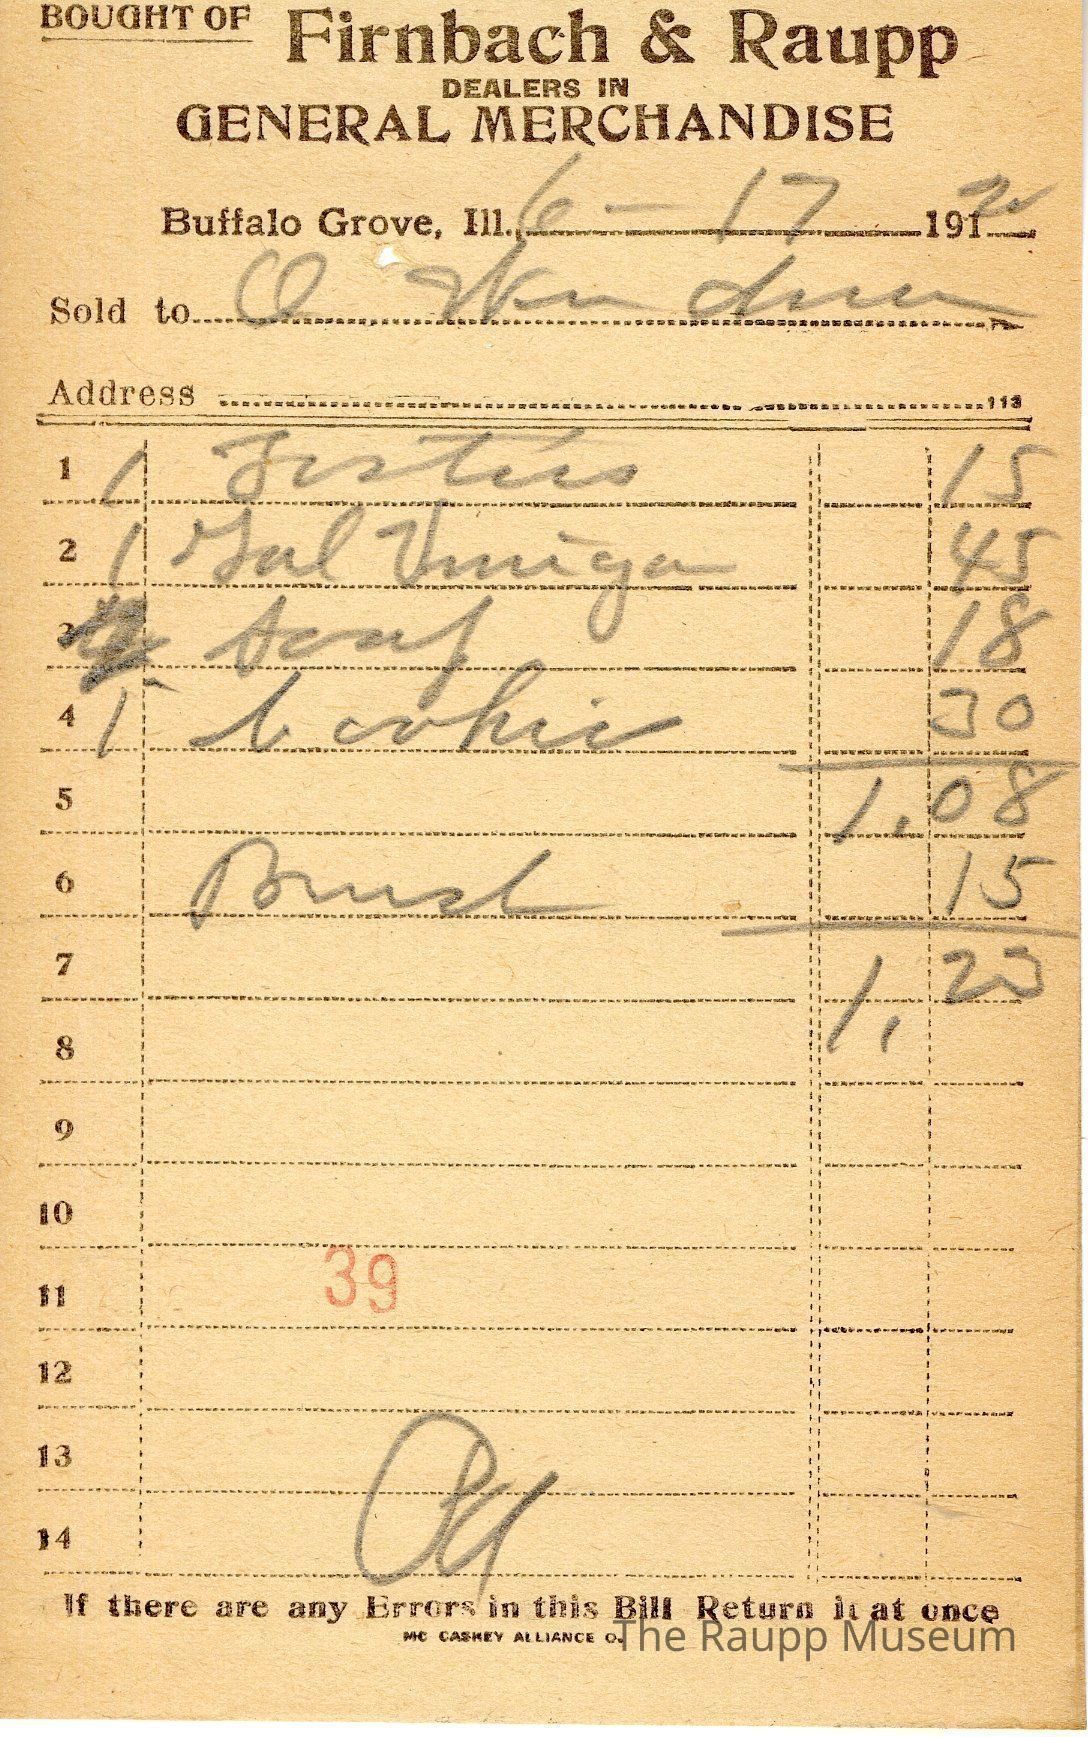 BOUGHT OF Firnbach & Raupp
DEALERS IN
GENERAL MERCHANDISE
Buffalo Grove, Ill., 6 - 17 191
Sold to O
Address 113
1 1 15
2 1 Gal Vinigar 45
3 Soap 18
4 1 Cookie 30
5 1.08
6 Brush 15
7 1.23
8
9
10
11 39
12
13
14
If there are any Errors in this Bill Return it at once
MC CASKEY ALLIANCE O.
The Raupp Museum